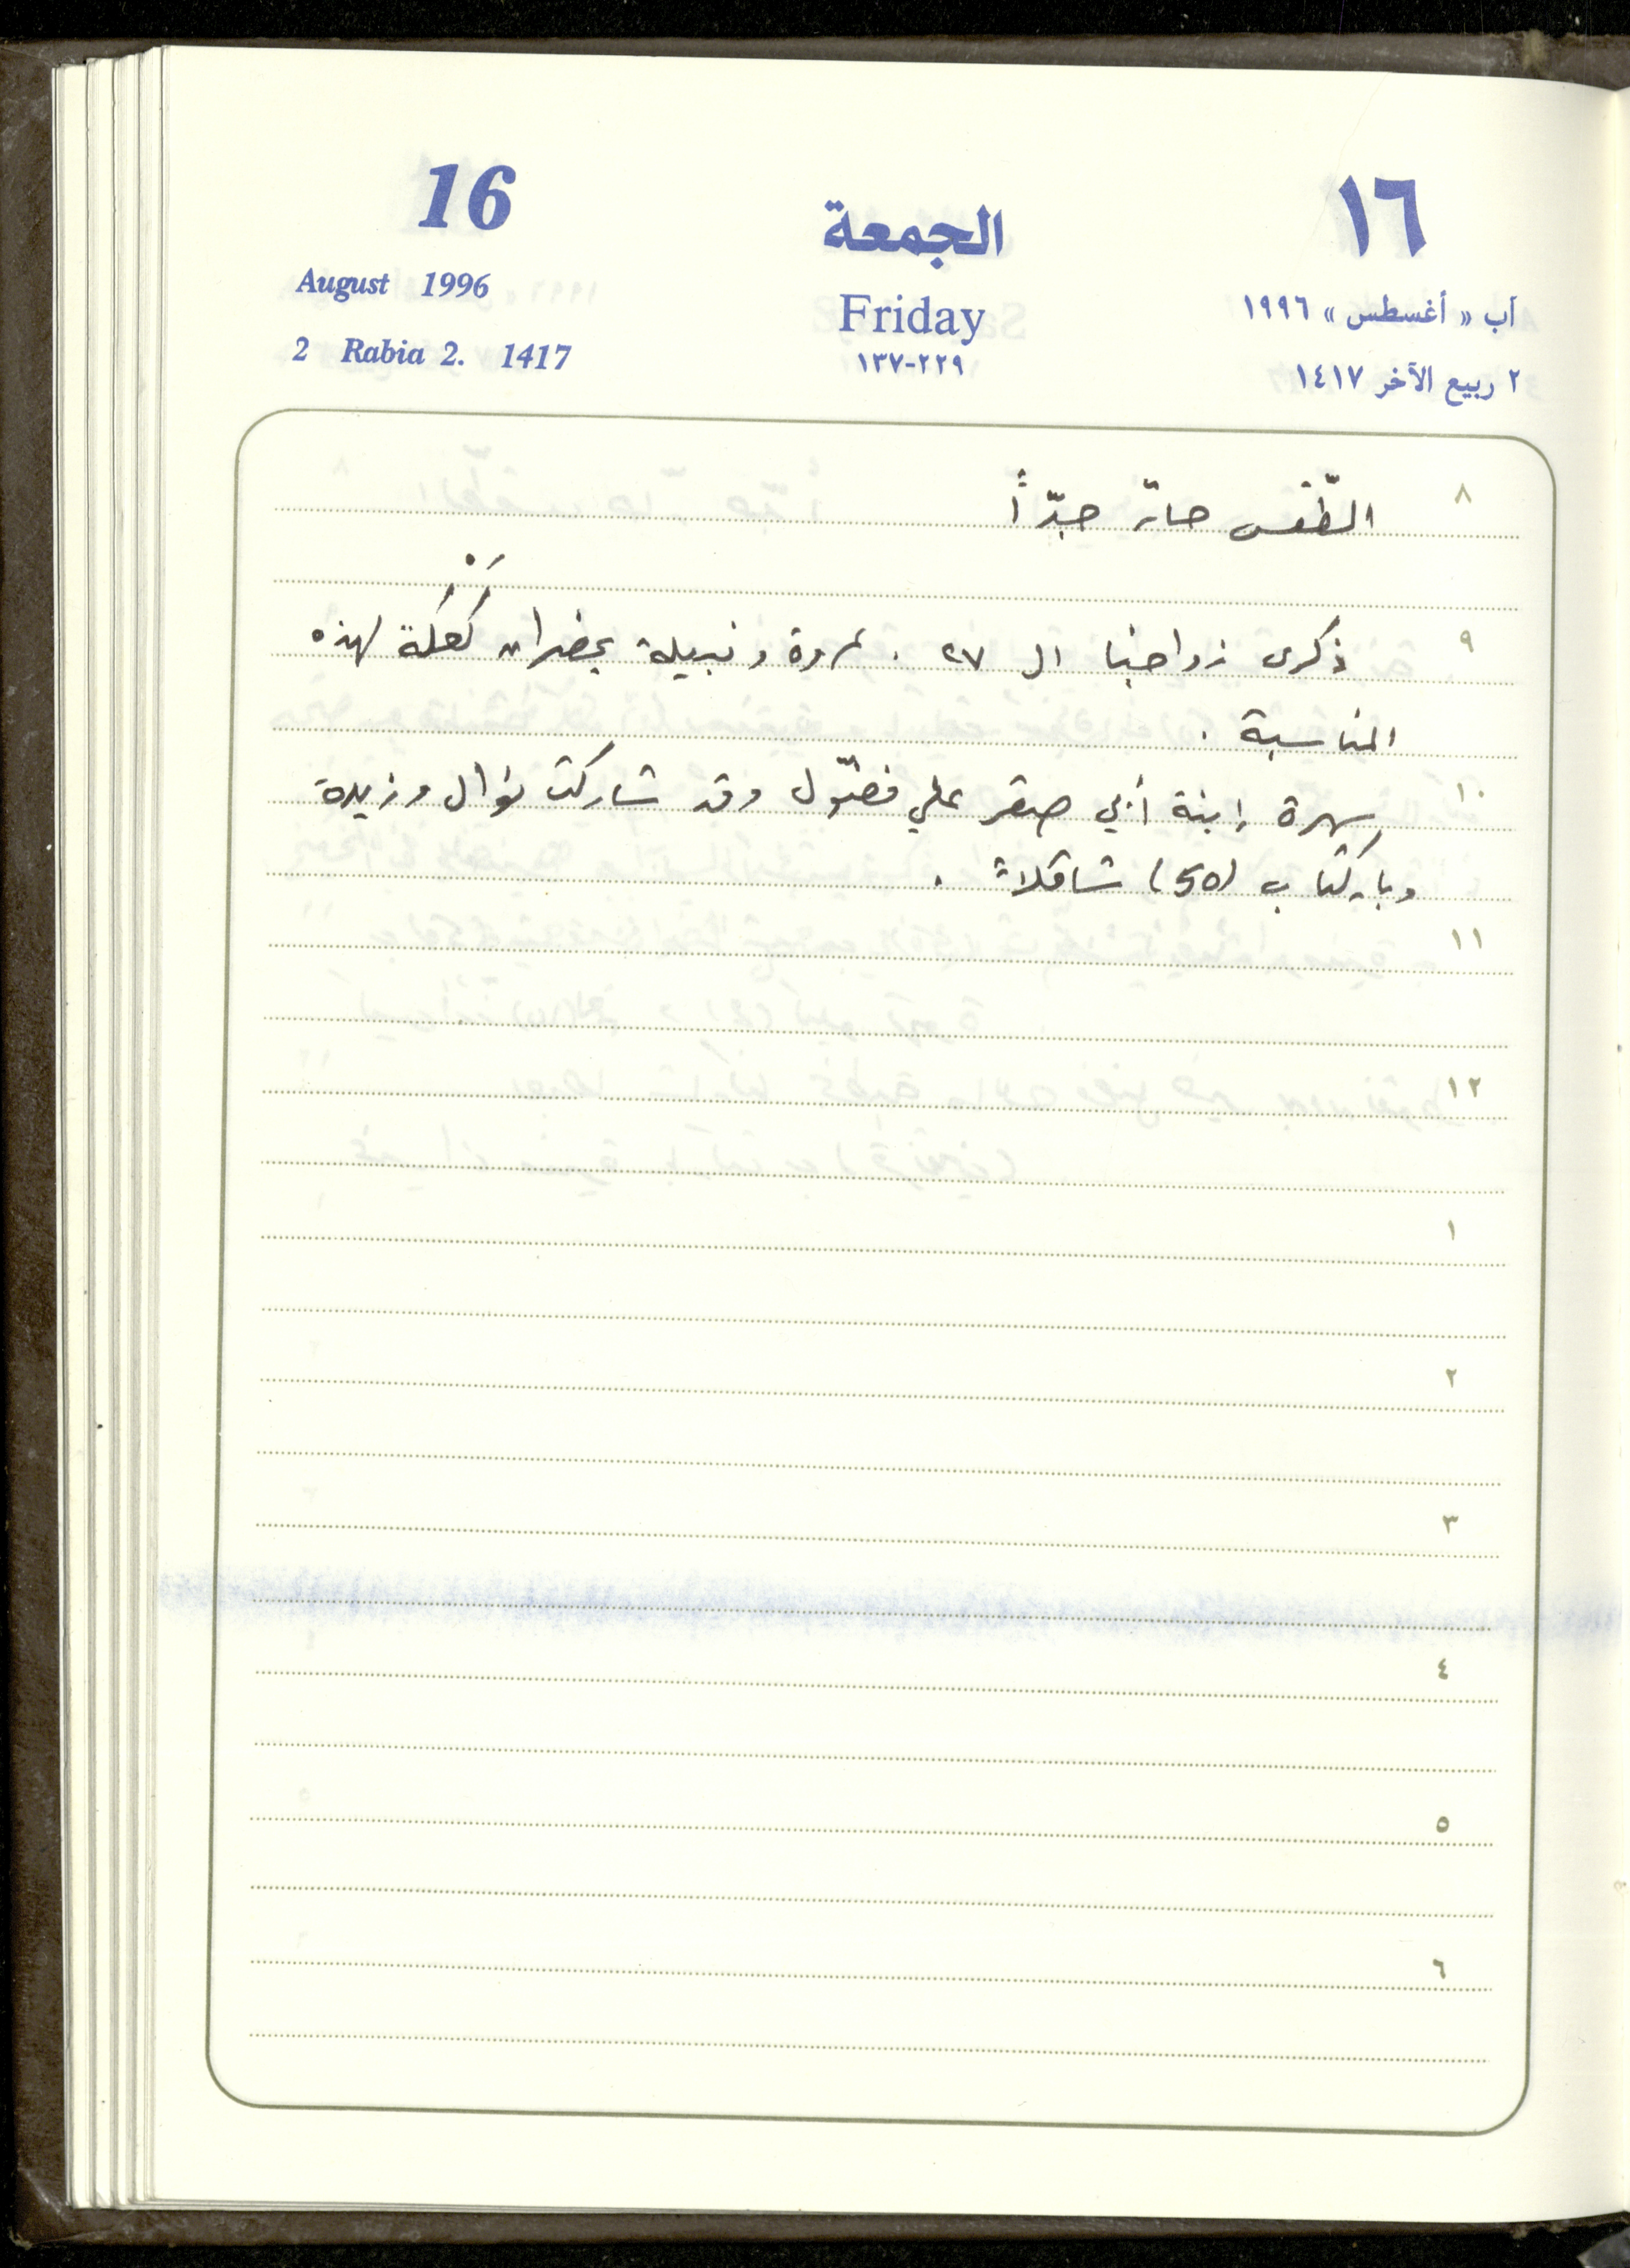 16
١٦
الجمعة
August 1996
Friday
آب « أغسطس » ١٩٩٦
2 Rabia 2. 1417
٢٢٩-١٣٧
٢ ربيع الآخر ١٤١٧
٨
الطّقس حارّ جدّاً
٩
ذكرى زواجنا ال ٢٧ . مروة ونبيلة يحضران كَعْكَة لهذه
المناسبة .
١٠
سهرة إبنة أبي صقر علي فضّول وقد شاركت نوال وزبيدة
وباركتا ب (50) شاقلاً .
١١
١٢
١
٢
٣
٤
٥
٦